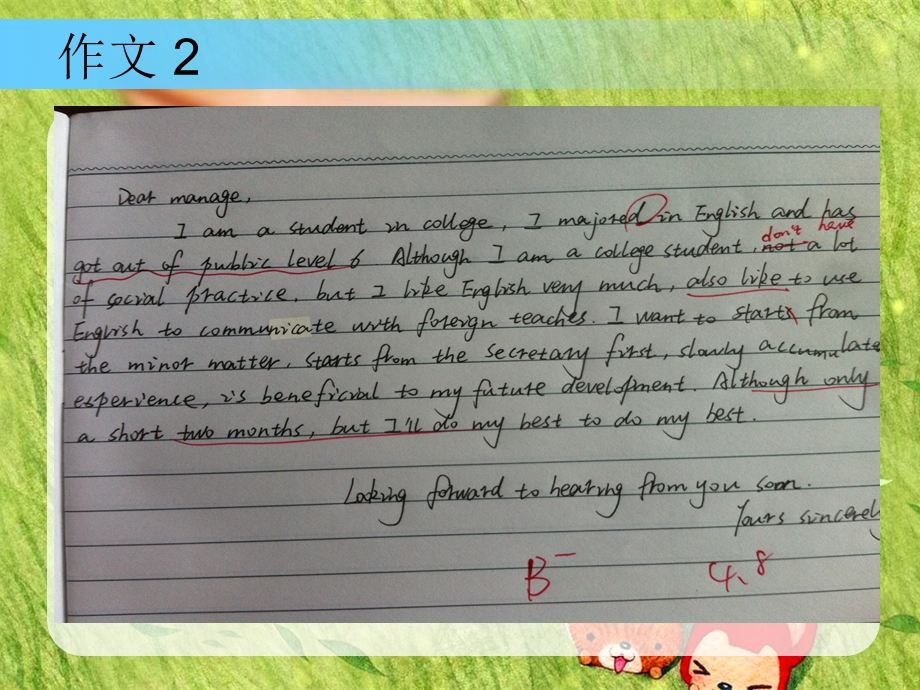 作文 2
Dear manage,
I am a student in college, I majored in English and has
got out of public level 6 Although I am a college student, not a lot
don't have
of social practice, but I like English very much, also like to use
English to communicate with foreign teaches. I want to starts from
the minor matter, starts from the secretary first, slowly accumulate
experience, is beneficial to my future development. Although only
a short two months, but I'll do my best to do my best.
Looking forward to hearing from you soon.
Yours sincerely
B⁻ 4、8